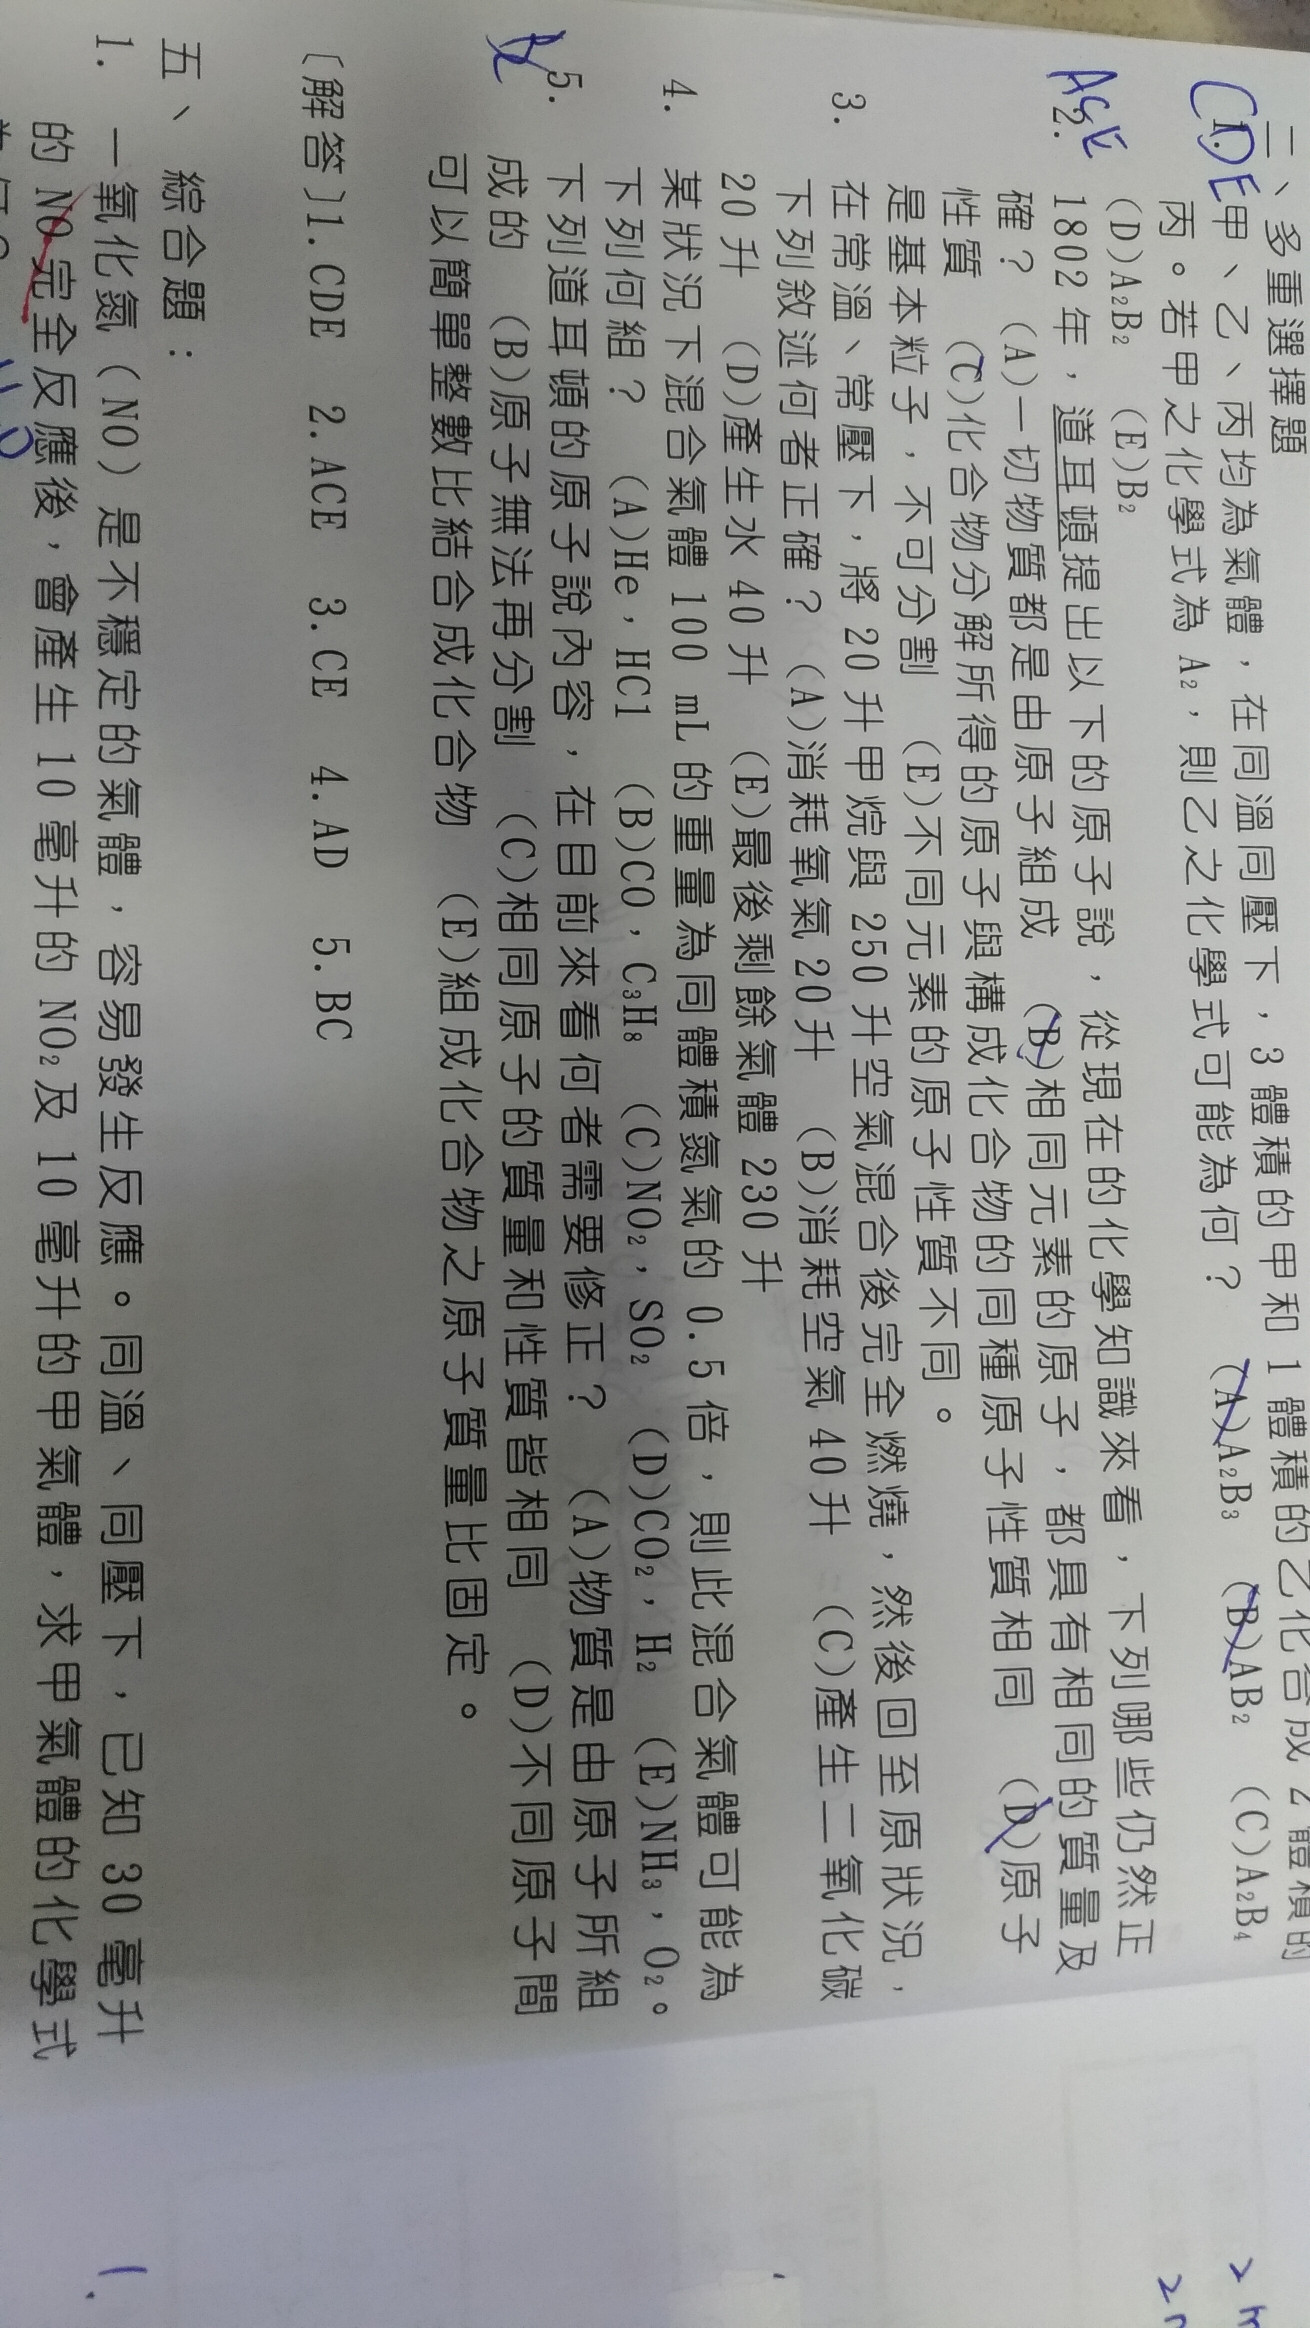 二、多重選擇題
CDE
1. 甲、乙、丙均為氣體，在同溫同壓下，3 體積的甲和 1 體積的乙化合成 2 體積的
丙。若甲之化學式為 A₂，則乙之化學式可能為何？ (A)A₂B₃ (B)AB₂ (C)A₂B₄
(D)A₂B₂ (E)B₂
ACE
2. 1802 年，道耳頓提出以下的原子說，從現在的化學知識來看，下列哪些仍然正
確？ (A)一切物質都是由原子組成 (B)相同元素的原子，都具有相同的質量及
性質 (C)化合物分解所得的原子與構成化合物的同種原子性質相同 (D)原子
是基本粒子，不可分割 (E)不同元素的原子性質不同。
3. 在常溫、常壓下，將 20 升甲烷與 250 升空氣混合後完全燃燒，然後回至原狀況，
下列敘述何者正確？ (A)消耗氧氣 20 升 (B)消耗空氣 40 升 (C)產生二氧化碳
20 升 (D)產生水 40 升 (E)最後剩餘氣體 230 升
4. 某狀況下混合氣體 100 mL 的重量為同體積氮氣的 0.5 倍，則此混合氣體可能為
下列何組？ (A)He，HCl (B)CO，C₃H₈ (C)NO₂，SO₂ (D)CO₂，H₂ (E)NH₃，O₂。
5. 下列道耳頓的原子說內容，在目前來看何者需要修正？ (A)物質是由原子所組
成的 (B)原子無法再分割 (C)相同原子的質量和性質皆相同 (D)不同原子間
可以簡單整數比結合成化合物 (E)組成化合物之原子質量比固定。
〔解答〕1.CDE 2.ACE 3.CE 4.AD 5.BC
五、綜合題：
1. 一氧化氮（NO）是不穩定的氣體，容易發生反應。同溫、同壓下，已知 30 毫升
的 NO 完全反應後，會產生 10 毫升的 NO₂及 10 毫升的甲氣體，求甲氣體的化學式
1.